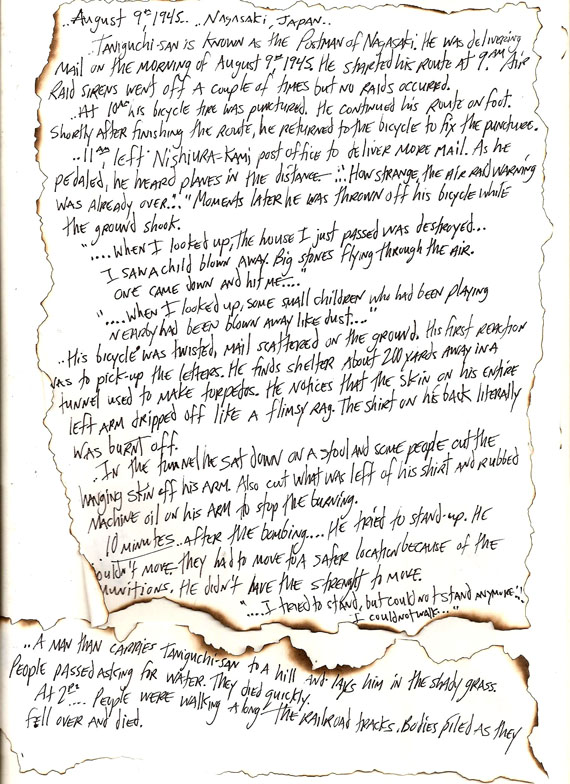 ..August 9th 1945. ..Nagasaki, Japan..
..Taniguchi-san is known as the Postman of Nagasaki. He was delivering
mail on the morning of August 9th 1945. He started his route at 9:AM Air
raid sirens went off a couple of times but no raids occured.
..At 10AM his bicycle tire was punctured. He continued his route on foot.
Shortly after finishing the route, he returned to the bicycle to fix the puncture.
..11AM left Nishiura-Kami post office to deliver more mail. As he
pedaled, he heard planes in the distance— "..How strange, the air raid warning
was already over..." Moments later he was thrown off his bicycle while
the ground shook.
"....When I looked up, the house I just passed was destroyed...
I saw a child blown away. Big stones flying through the air.
One came down and hit me....."
"....When I looked up, some small children who had been playing
nearby had been blown away like dust...."
..His bicycle was twisted, mail scattered on the ground. His first reaction
was to pick-up the letters. He finds shelter about 200 yards away in a
tunnel used to make torpedos. He notices that the skin on his entire
left arm dripped off like a flimsy rag. The shirt on his back literally
was burnt off.
..In the tunnel he sat down on a stool and some people cut the
hanging skin off his arm. Also cut what was left of his shirt and rubbed
machine oil on his arm to stop the burning.
10 minutes.. after the bombing.... He tried to stand-up. He
ouldn't move. They had to move to a safer location because of the
munitions. He didn't have the strenght to move.
"...I tried to stand, but could not stand anymore..."
I could not walk..."
..A man than carries Taniguchi-san to a hill and lays him in the shady grass.
People passed asking for water. They died quickly.
At 2PM.... People were walking along the railroad tracks. Bodies piled as they
fell over and died.